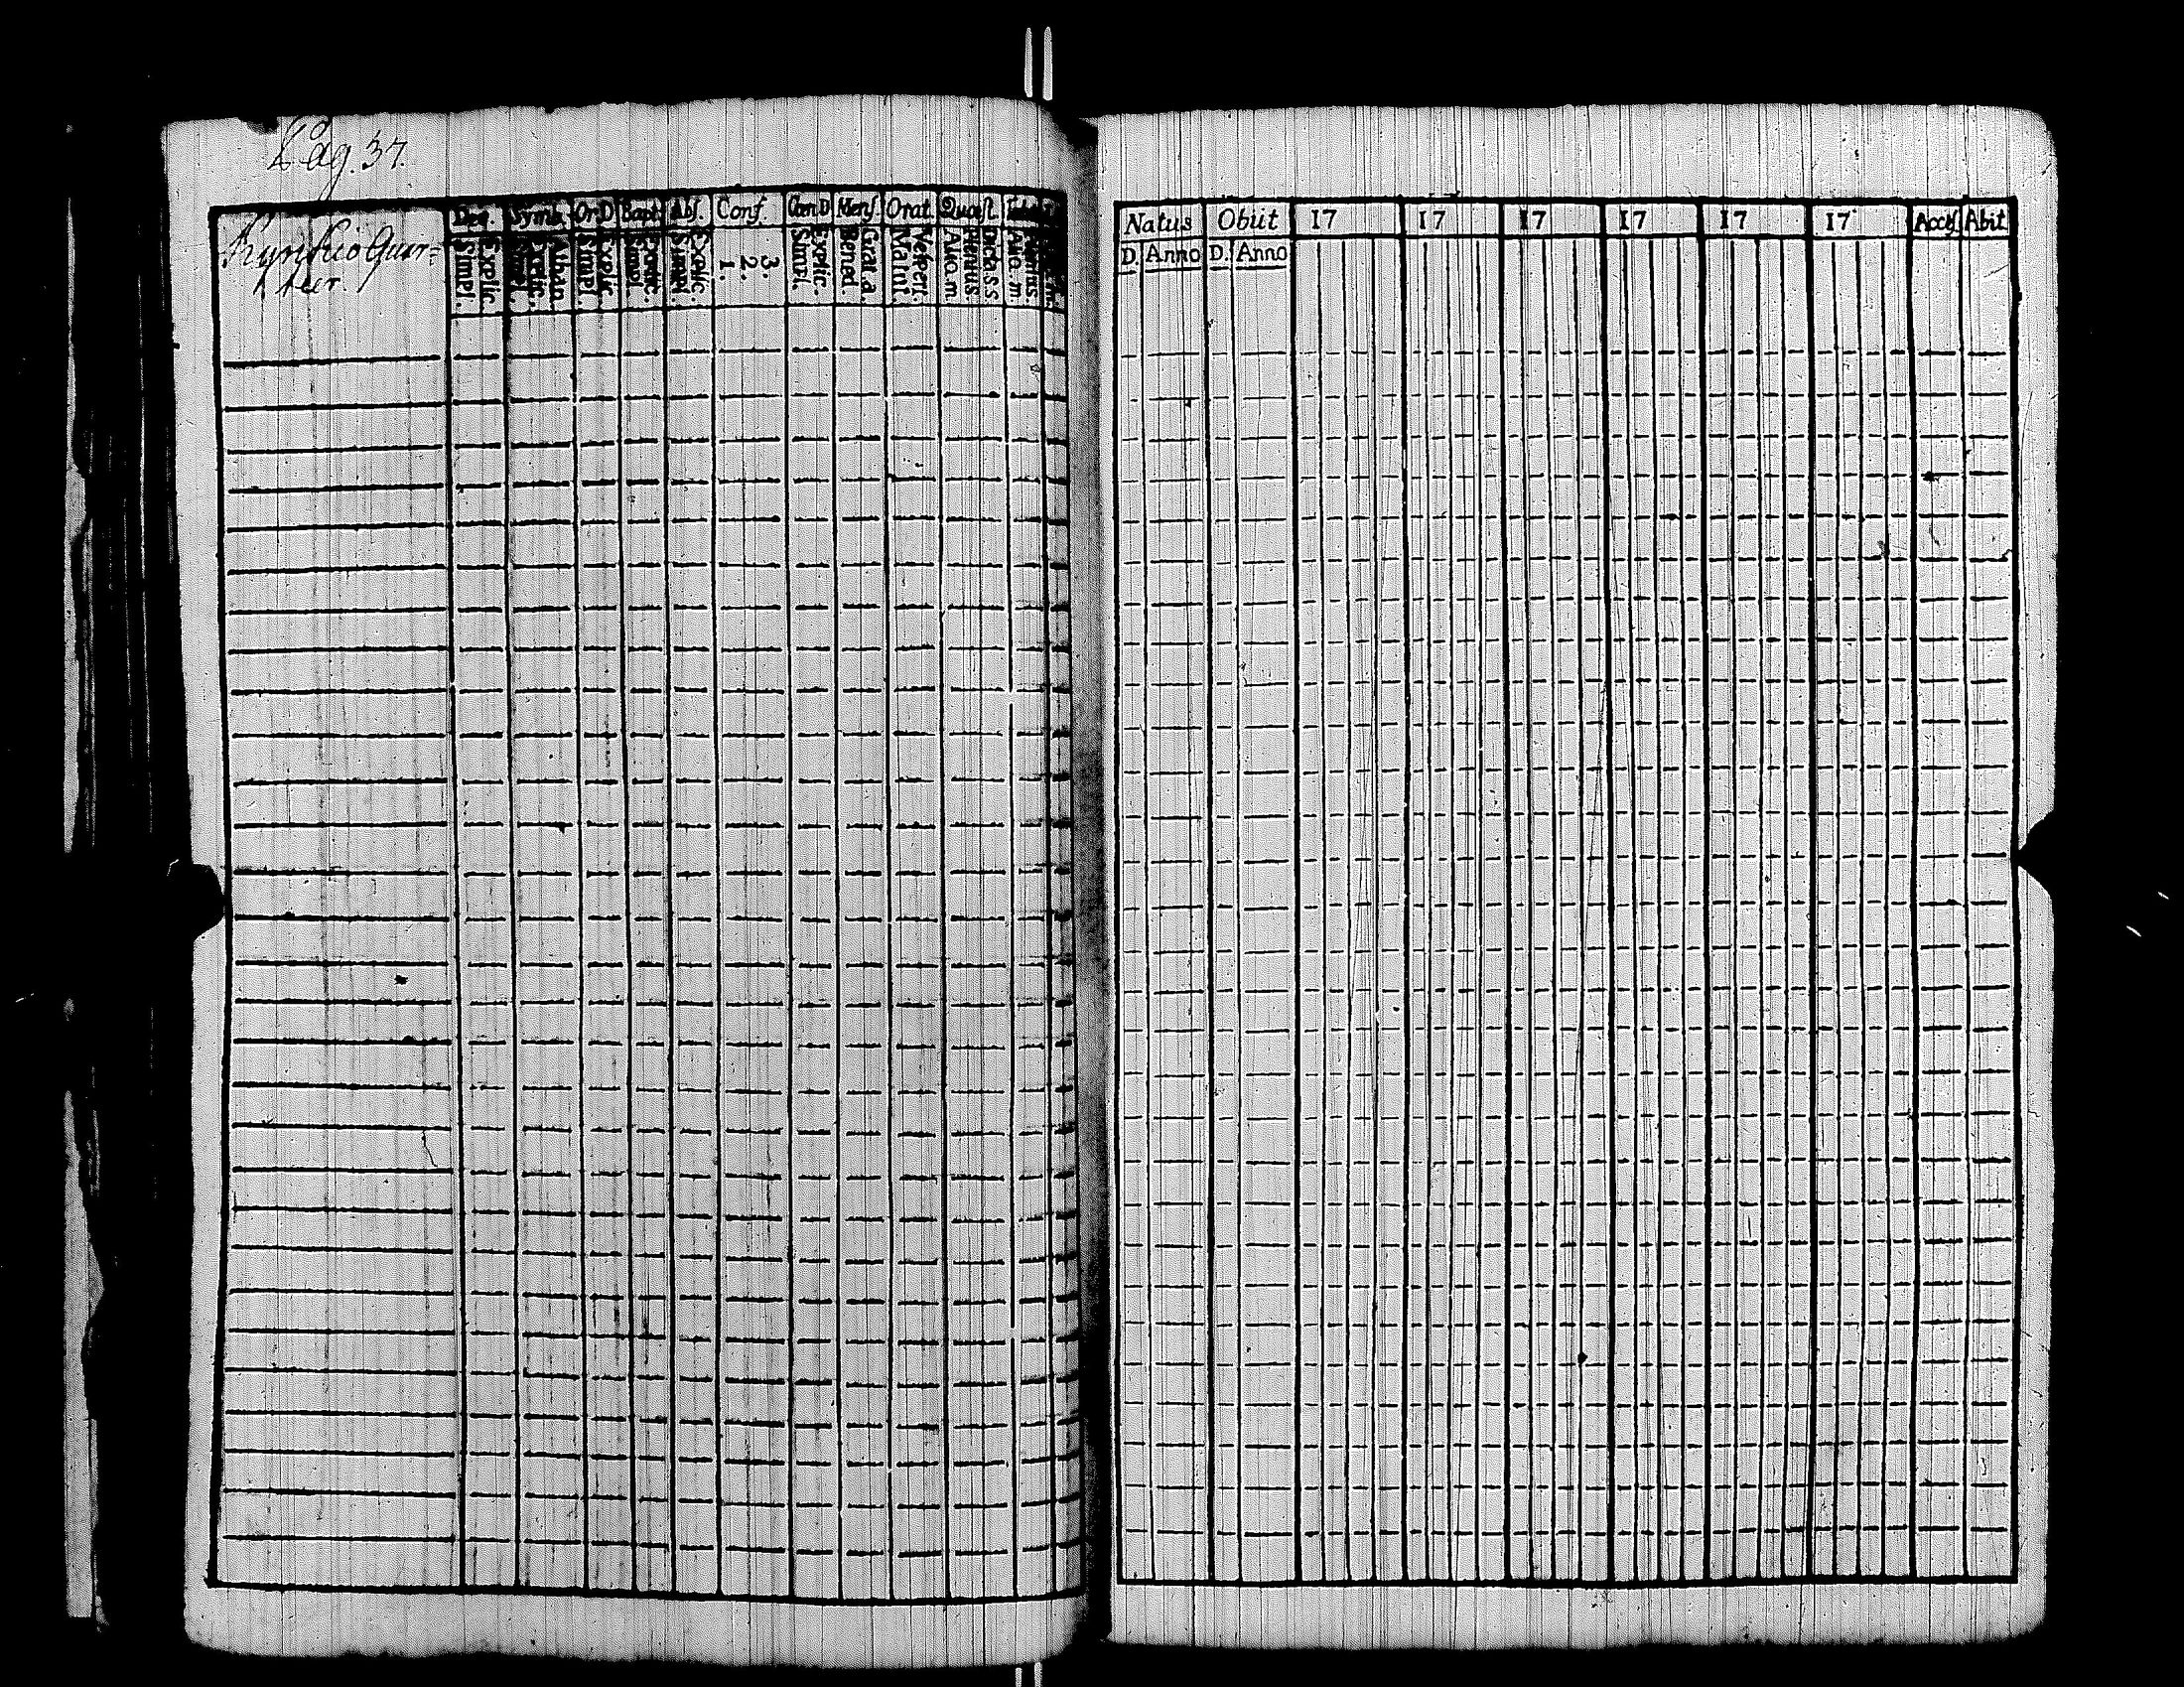 Pag. 37.
Decc. Symb. Or.D Bapt. Abs. Conf. Can.D Mens. Orat. Quæst.
Simpl. Explic. Simpl. Explic. Athan. Simpl. Explic. Simpl. Simpl. Explic. 1. 2. 3. Simpl. Explic. Bened. Grat. a. Matut. Vespert. Aliq. m. Plenius. Dic. ass. Aliq. m.
Natus Obiit 17 17 17 17 17 17 Access Abit
D. Anno D. Anno